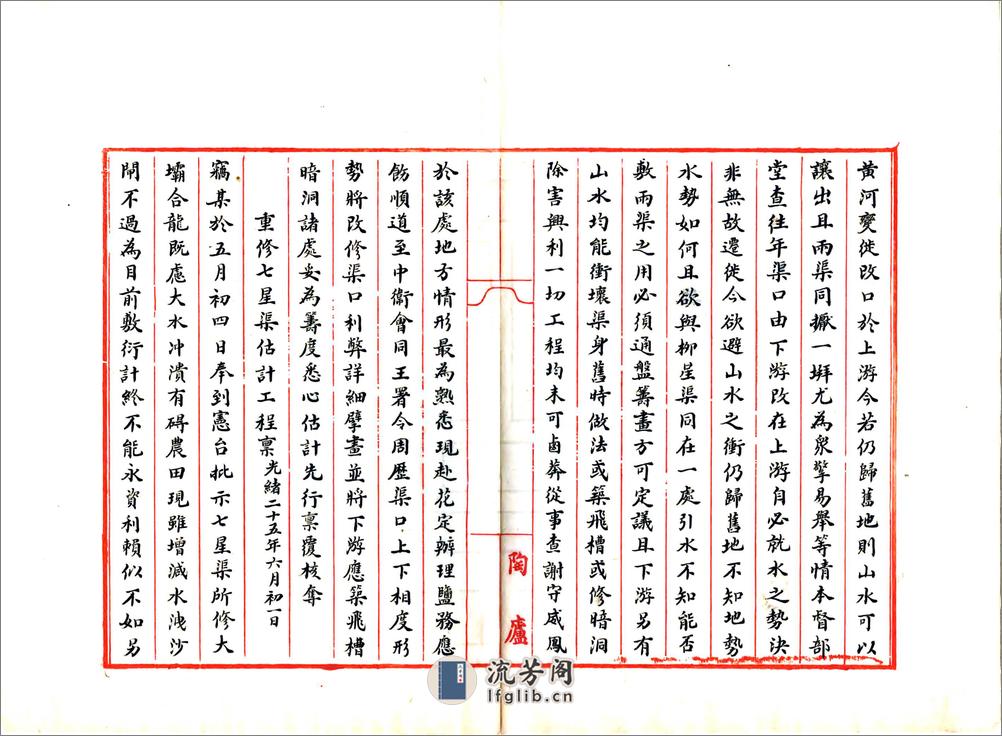 黃河變徙改口於上游今若仍歸舊地則山水可以
讓出且兩渠同撅一塀尤為衆擎易舉等情本督部
堂查往年渠口由下游改在上游自必就水之勢決
非無故遷徙今欲避山水之衝仍歸舊地不知地勢
水勢如何且欲與柳星渠同在一處引水不知能否
敷兩渠之用必須通盤籌畫方可定議且下游另有
山水均能衝壞渠身舊時做法或築飛槽或修暗洞
除害興利一切工程均未可鹵莽從事查謝守威鳳
陶廬
於該處地方情形最為熟悉現赴花定辦理鹽務應
飭順道至中衛會同王署令周歷渠口上下相度形
勢將改修渠口利弊詳細擘畫並將下游應築飛槽
暗洞諸處妥為籌度悉心估計先行稟覆核奪
重修七星渠估計工程稟光緒二十五年六月初一日
竊某於五月初四日奉到憲台批示七星渠所修大
壩合龍既慮大水沖潰有碍農田現雖增減水洩沙
閘不過為目前敷衍計終不能永資利賴似不如另
流芳阁
lfglib.cn